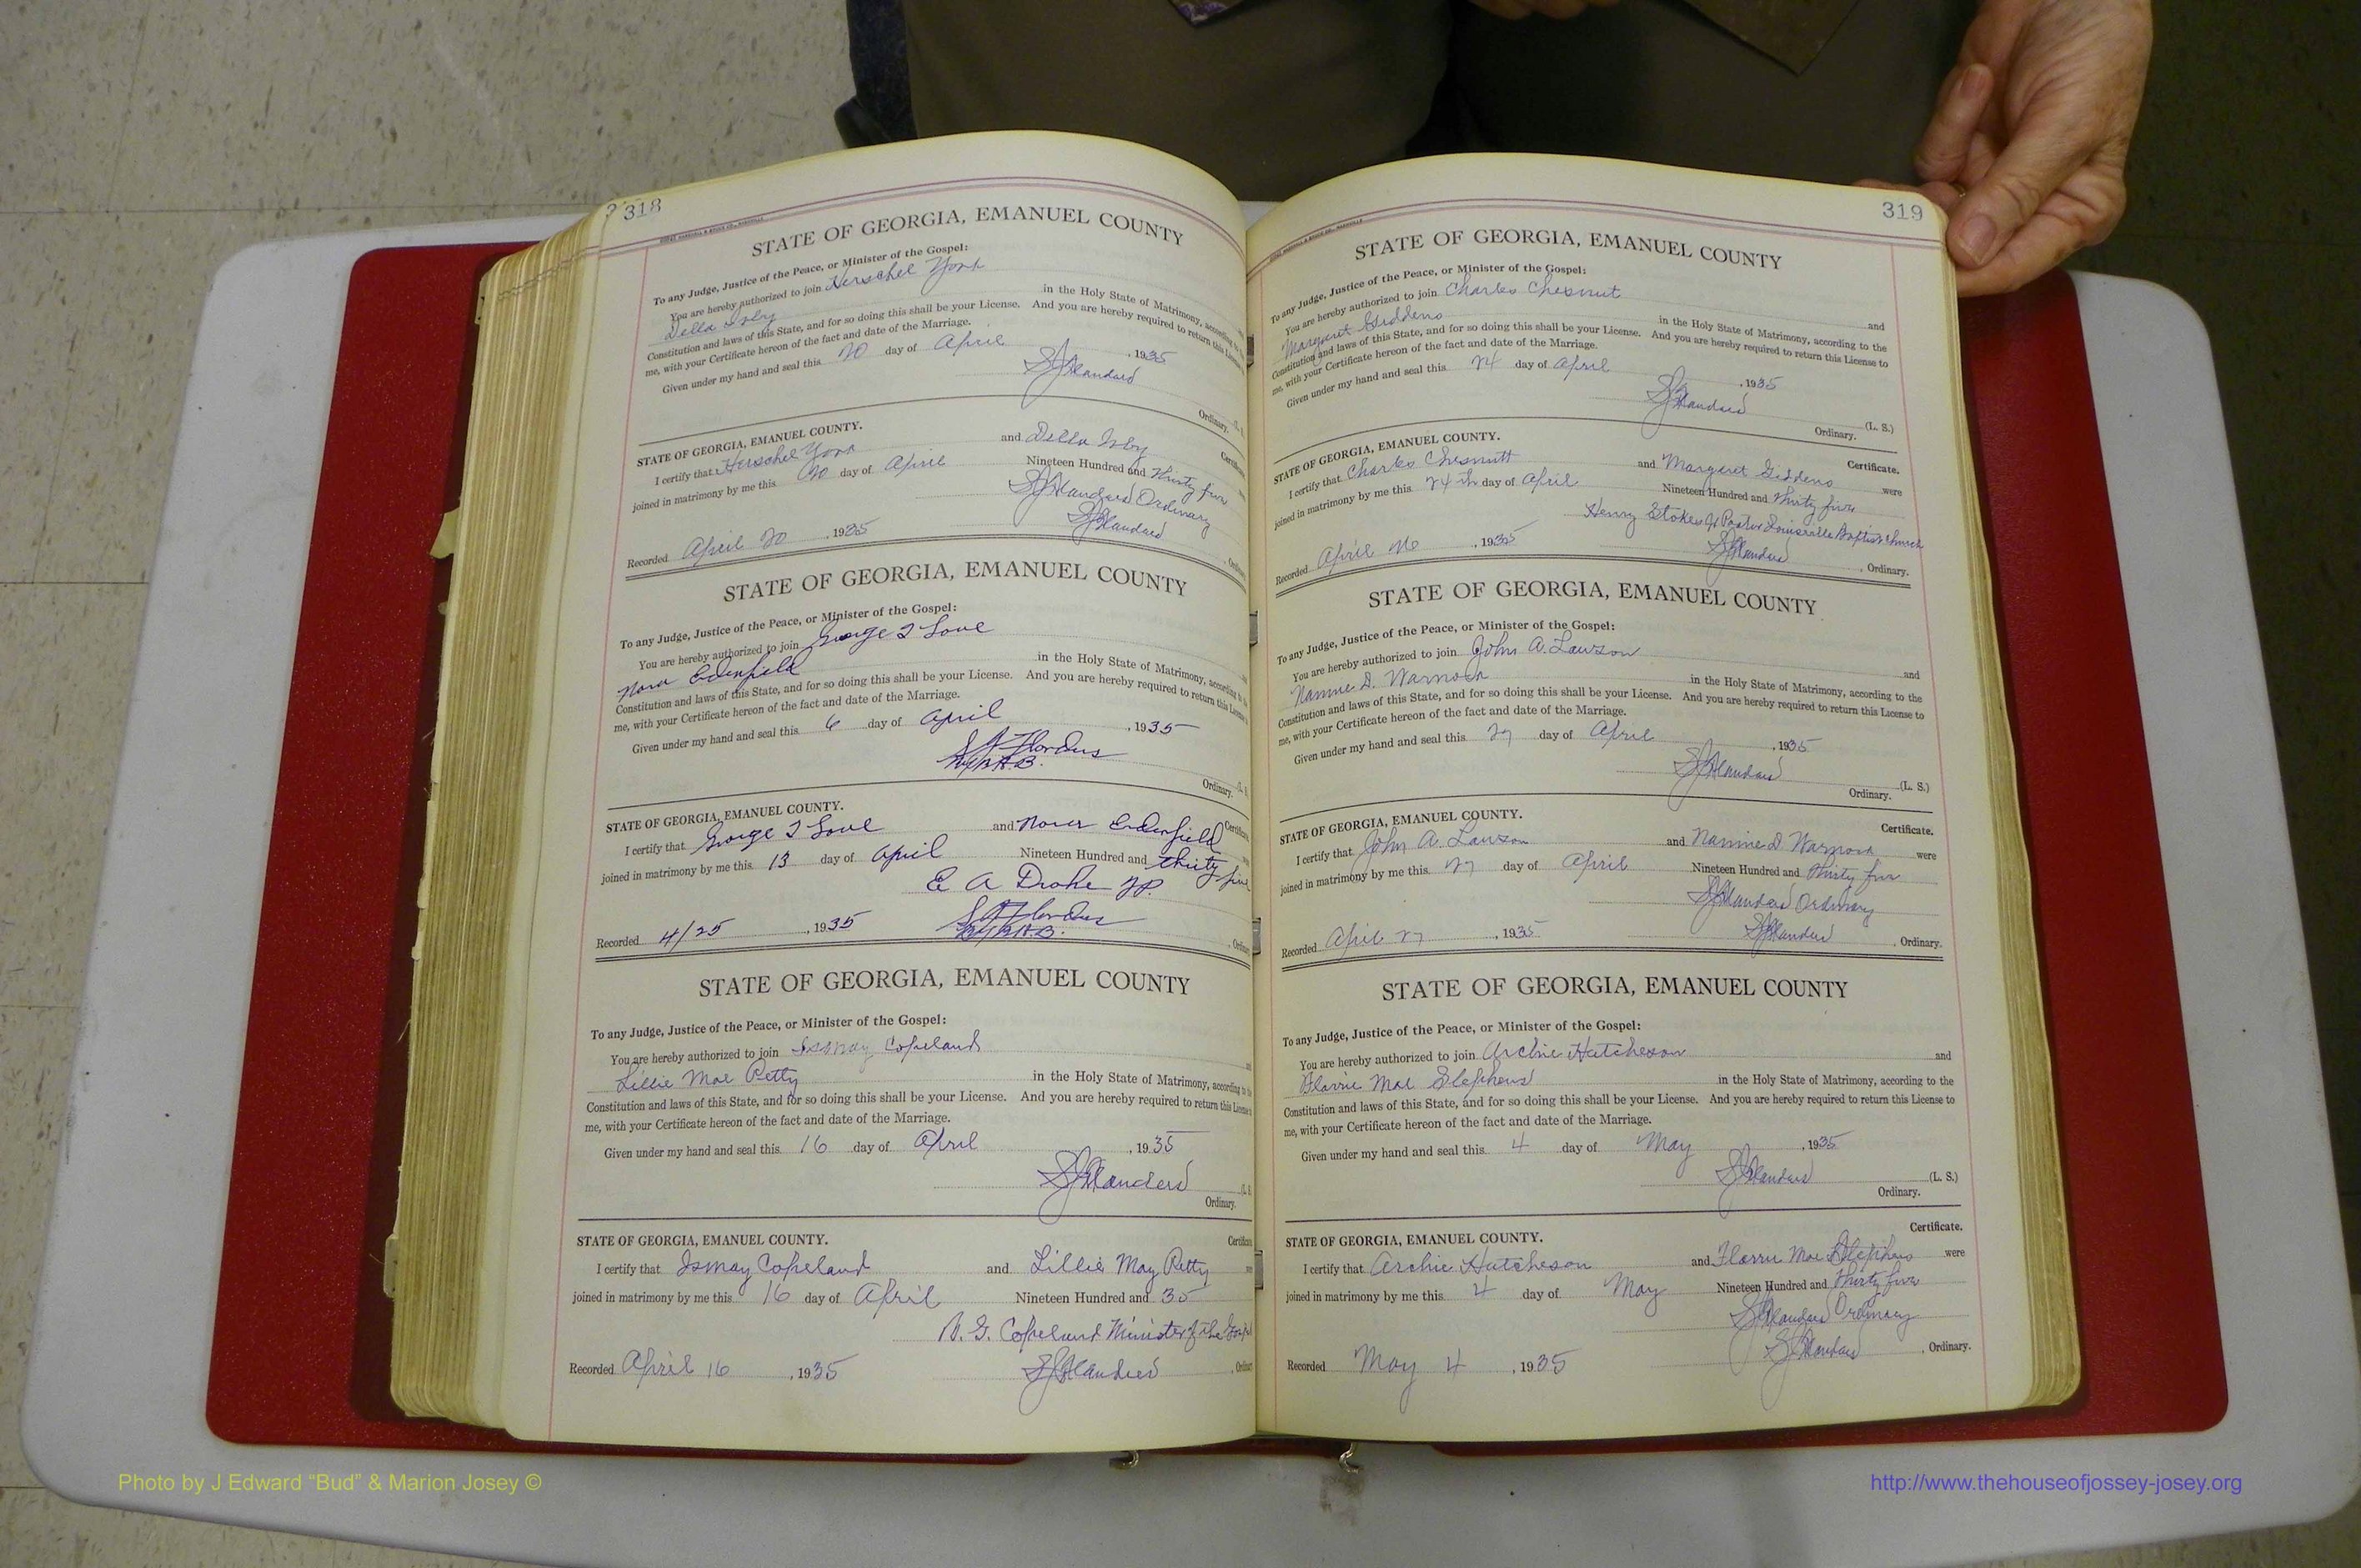 318
STATE OF GEORGIA, EMANUEL COUNTY
To any Judge, Justice of the Peace, or Minister of the Gospel:
You are hereby authorized to join Herschel York
Della Irby in the Holy State of Matrimony, according to
Constitution and laws of this State, and for so doing this shall be your License. And you are hereby required to return this License
me, with your Certificate hereon of the fact and date of the Marriage.
Given under my hand and seal this 20 day of April, 1935
Ordinary. (L. S.
STATE OF GEORGIA, EMANUEL COUNTY. Certificate
I certify that Herschel York and Della Irby
joined in matrimony by me this 20 day of April Nineteen Hundred and Thirty five
Ordinary
Recorded April 20, 1935
STATE OF GEORGIA, EMANUEL COUNTY
To any Judge, Justice of the Peace, or Minister of the Gospel:
You are hereby authorized to join George I Love
Nora Edenfield in the Holy State of Matrimony, according to
Constitution and laws of this State, and for so doing this shall be your License. And you are hereby required to return this License
me, with your Certificate hereon of the fact and date of the Marriage.
Given under my hand and seal this 6 day of April, 1935
Ordinary. (L. S.
STATE OF GEORGIA, EMANUEL COUNTY. Certificate
I certify that George I Love and Nora Edenfield
joined in matrimony by me this 13 day of April Nineteen Hundred and thirty five
E A Drake J.P.
Recorded 4/25, 1935
STATE OF GEORGIA, EMANUEL COUNTY
To any Judge, Justice of the Peace, or Minister of the Gospel:
You are hereby authorized to join Ismay Copeland
Lillie Mae Petty in the Holy State of Matrimony, according to the
Constitution and laws of this State, and for so doing this shall be your License. And you are hereby required to return this License
me, with your Certificate hereon of the fact and date of the Marriage.
Given under my hand and seal this 16 day of April, 1935
Flanders
Ordinary.
STATE OF GEORGIA, EMANUEL COUNTY. Certificate
I certify that Ismay Copeland and Lillie May Petty
joined in matrimony by me this 16 day of April Nineteen Hundred and 35
Copeland Minister of the Gospel
Recorded April 16, 1935 Flanders
319
STATE OF GEORGIA, EMANUEL COUNTY
To any Judge, Justice of the Peace, or Minister of the Gospel:
You are hereby authorized to join Charles Chesnut and
Margaret Giddens in the Holy State of Matrimony, according to the
Constitution and laws of this State, and for so doing this shall be your License. And you are hereby required to return this License to
me, with your Certificate hereon of the fact and date of the Marriage.
Given under my hand and seal this 24 day of April, 1935
Flanders (L. S.)
Ordinary.
STATE OF GEORGIA, EMANUEL COUNTY. Certificate.
I certify that Charles Chesnutt and Margaret Giddens were
joined in matrimony by me this 24th day of April Nineteen Hundred and Thirty five
Henry Stokes Jr Pastor Louisville Baptist Church
Recorded April 26, 1935 Flanders, Ordinary.
STATE OF GEORGIA, EMANUEL COUNTY
To any Judge, Justice of the Peace, or Minister of the Gospel:
You are hereby authorized to join John A. Lawson and
Nannie D. Warnock in the Holy State of Matrimony, according to the
Constitution and laws of this State, and for so doing this shall be your License. And you are hereby required to return this License to
me, with your Certificate hereon of the fact and date of the Marriage.
Given under my hand and seal this 27 day of April, 1935
Flanders (L. S.)
Ordinary.
STATE OF GEORGIA, EMANUEL COUNTY. Certificate.
I certify that John A. Lawson and Nannie D Warnock were
joined in matrimony by me this 27 day of April Nineteen Hundred and Thirty five
Flanders Ordinary
Recorded April 27, 1935 Flanders, Ordinary.
STATE OF GEORGIA, EMANUEL COUNTY
To any Judge, Justice of the Peace, or Minister of the Gospel:
You are hereby authorized to join Archie Hutcheson and
Florrie Mae Stephens in the Holy State of Matrimony, according to the
Constitution and laws of this State, and for so doing this shall be your License. And you are hereby required to return this License to
me, with your Certificate hereon of the fact and date of the Marriage.
Given under my hand and seal this 4 day of May, 1935
Flanders (L. S.)
Ordinary.
STATE OF GEORGIA, EMANUEL COUNTY. Certificate.
I certify that Archie Hutcheson and Florrie Mae Stephens were
joined in matrimony by me this 4 day of May Nineteen Hundred and Thirty five
Flanders Ordinary
Recorded May 4, 1935 Flanders, Ordinary.
Photo by J Edward “Bud” & Marion Josey ©
http://www.thehouseofjossey-josey.org